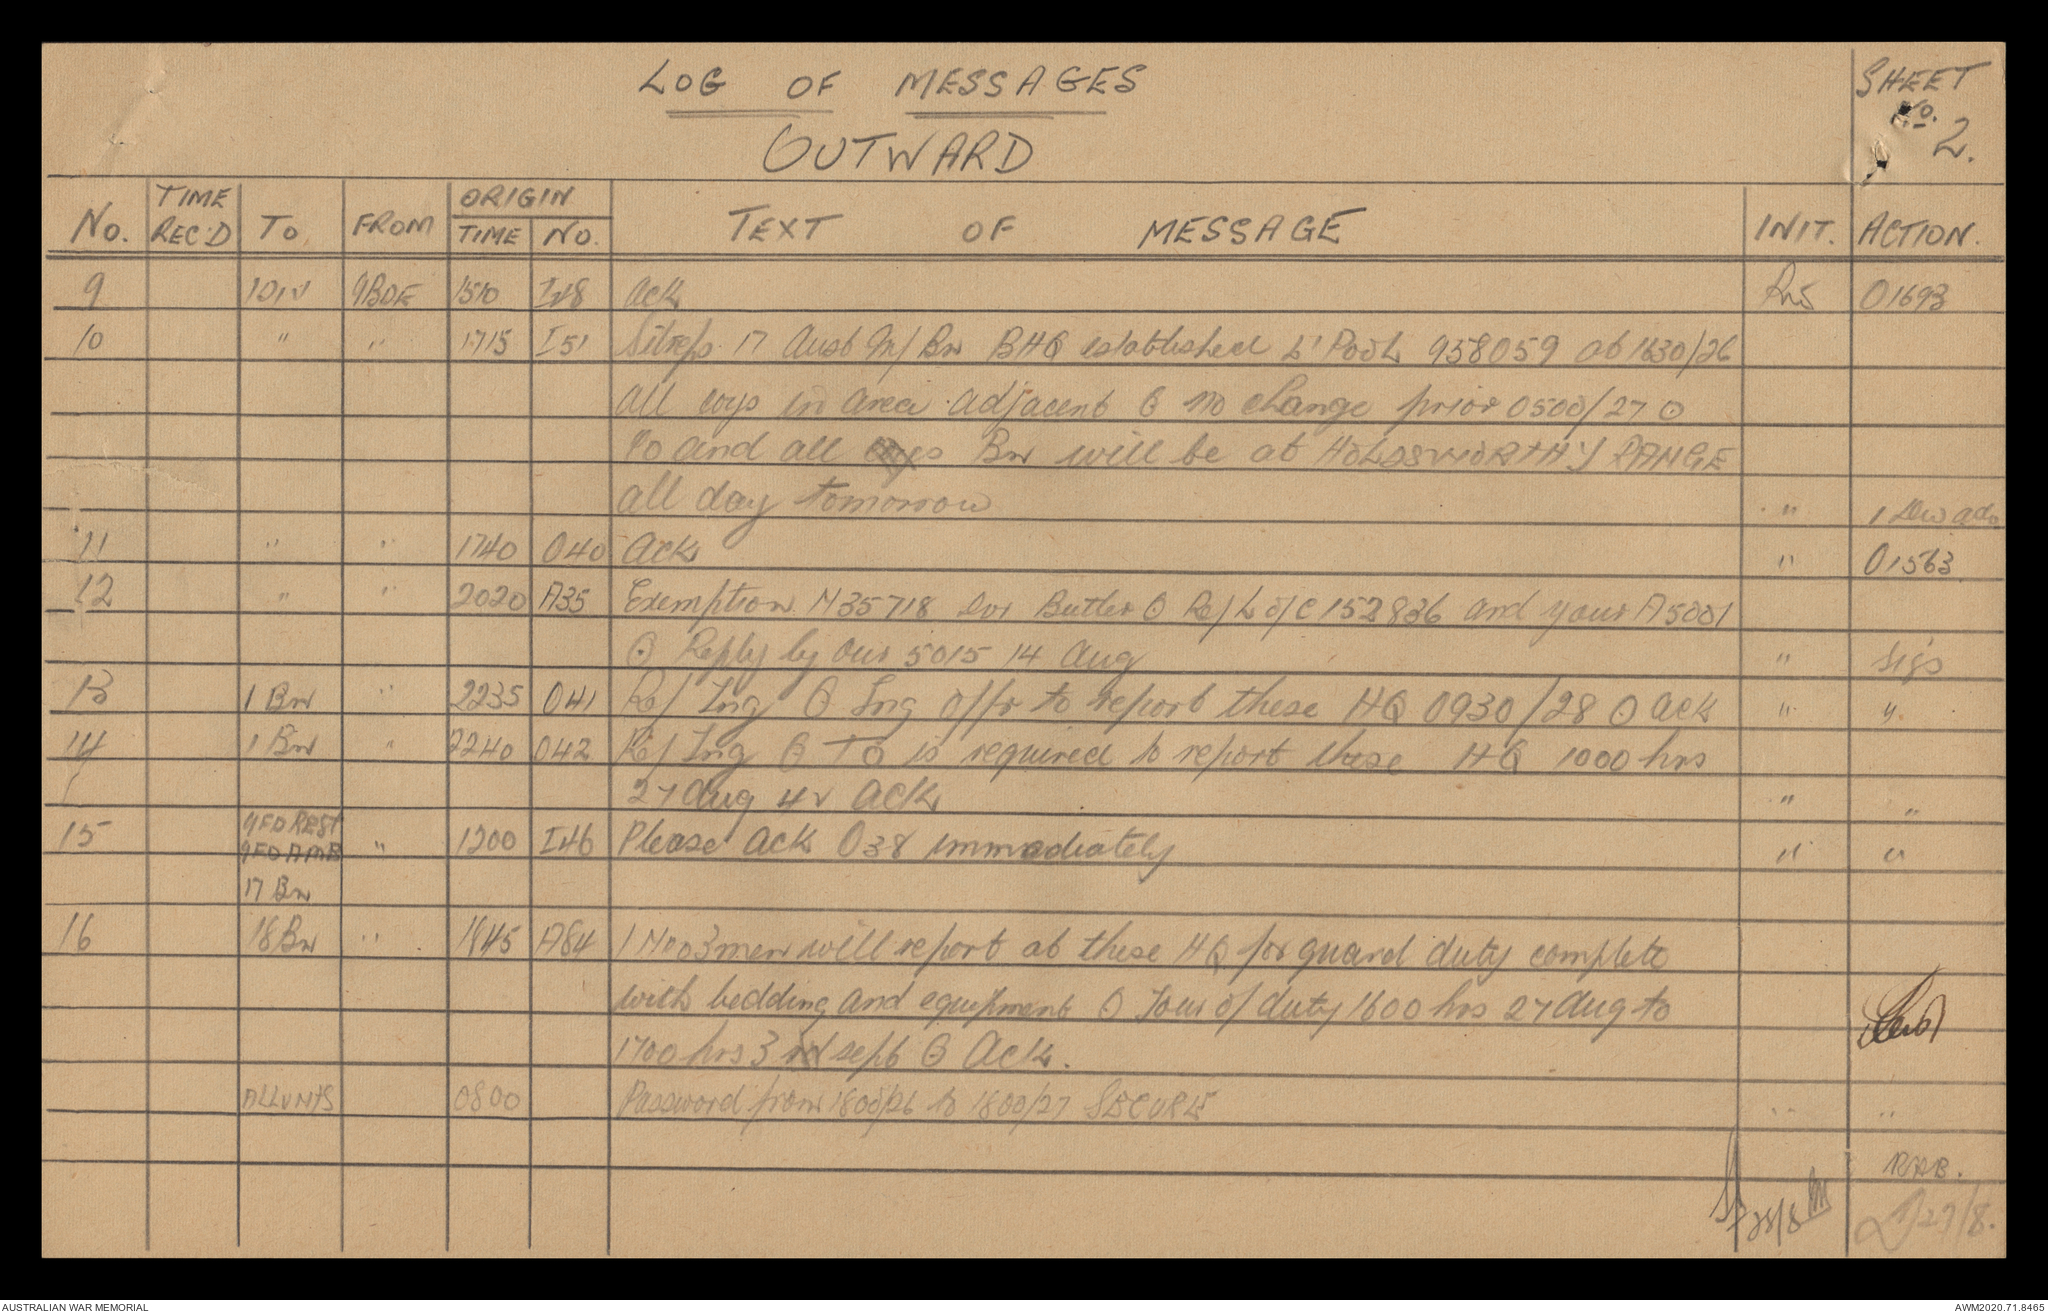 LOG OF MESSAGES
OUTWARD
SHEET No. 2.
No. TIME REC'D TO FROM ORIGIN TIME NO. TEXT OF MESSAGE INIT. ACTION.
9 1 DIV 9 BDE 1510 I48 Ack O1693
10 " " 1715 I51 Sitrep 17 Aust Inf Bn BHQ established L'POOL 958059 at 1630/26
all coys in area adjacent ⊙ no change prior 0500/27 ⊙
and all Bn will be at HOLDSWORTHY RANGE
all day tomorrow " 1 Div
11 " " 1740 O40 Ack " O1563
12 " " 2020 A35 Exemption N35718 Dvr Butler ⊙ Ref L of C 152836 and your A5001
⊙ Reply by our 5015 14 Aug " Sigs
13 1 Bn " 2235 O41 Ref Trg ⊙ Trg offr to report these HQ 0930/28 ⊙ Ack " "
14 1 Bn " 2240 O42 Ref Trg ⊙ TO is required to report these HQ 1000 hrs
27 Aug 42 Ack " "
15 9 FD REGT
9 FD AMB " 1200 I46 Please Ack O38 immediately " "
17 Bn
16 18 Bn " 1845 A84 1 NCO 3 men will report at these HQ for guard duty complete
with bedding and equipment ⊙ Tour of duty 1600 hrs 27 Aug to
1700 hrs 3rd sept ⊙ Ack.
ALL UNITS 0800 Password from 1800/26 to 1800/27 SECURE " "
RAB.
28/8
27/8.
AUSTRALIAN WAR MEMORIAL
AWM2020.71.8465